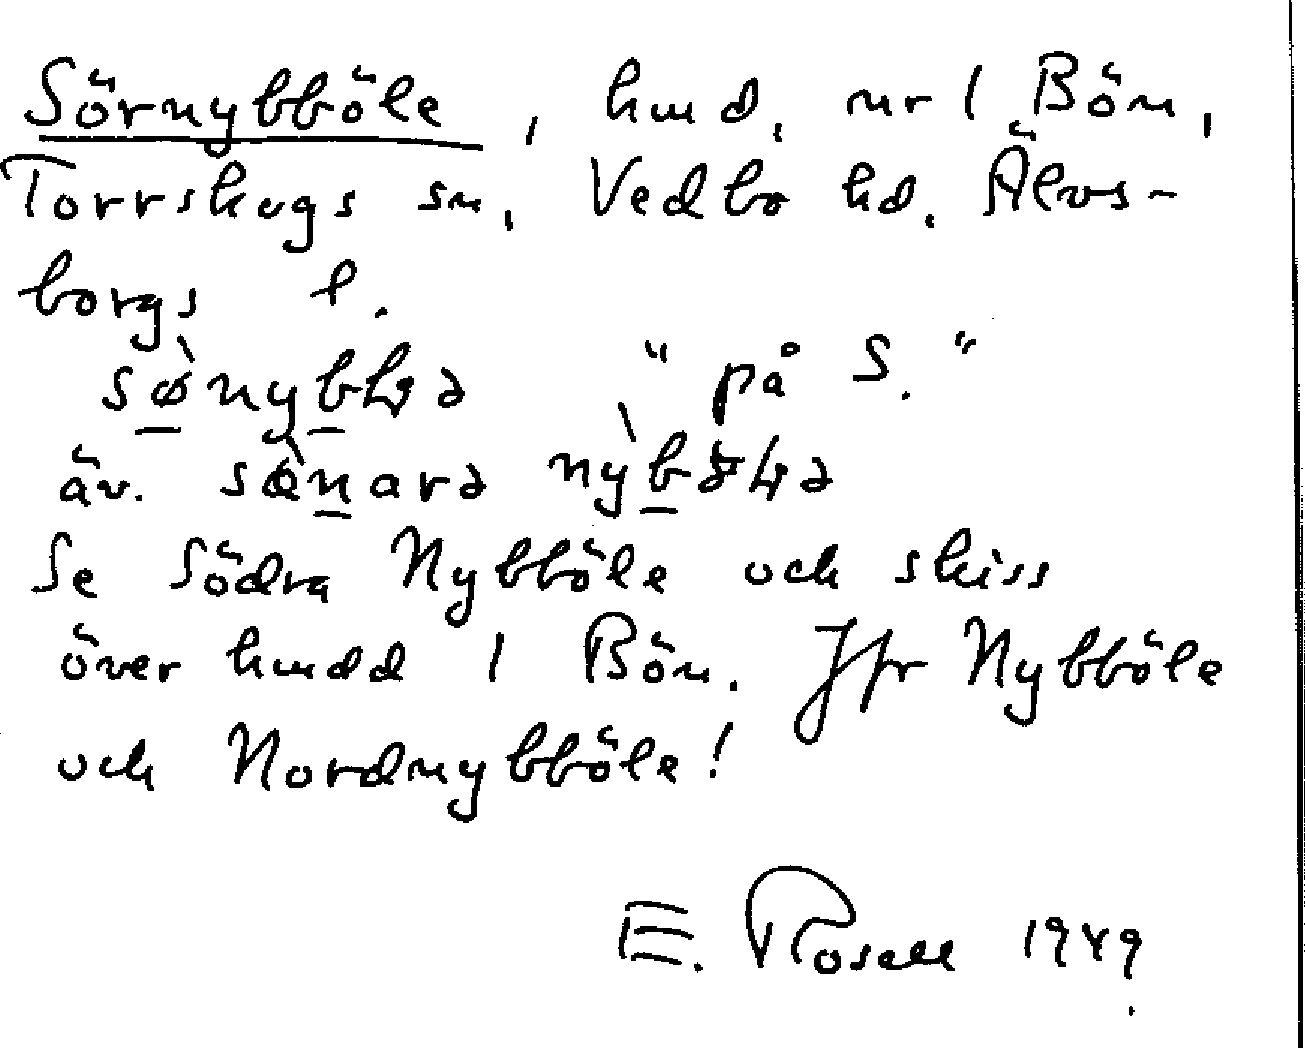 Sörnybböle, hmd. nr 1 Bön,
Torrskogs sn, Vedbo hd. Älvs-
borgs l.
"på S."
äv.
Se Södra Nybböle och skiss
över hmdd 1 Bön. Jfr Nybböle
och Nordnybböle!
E. Rosell 1949.